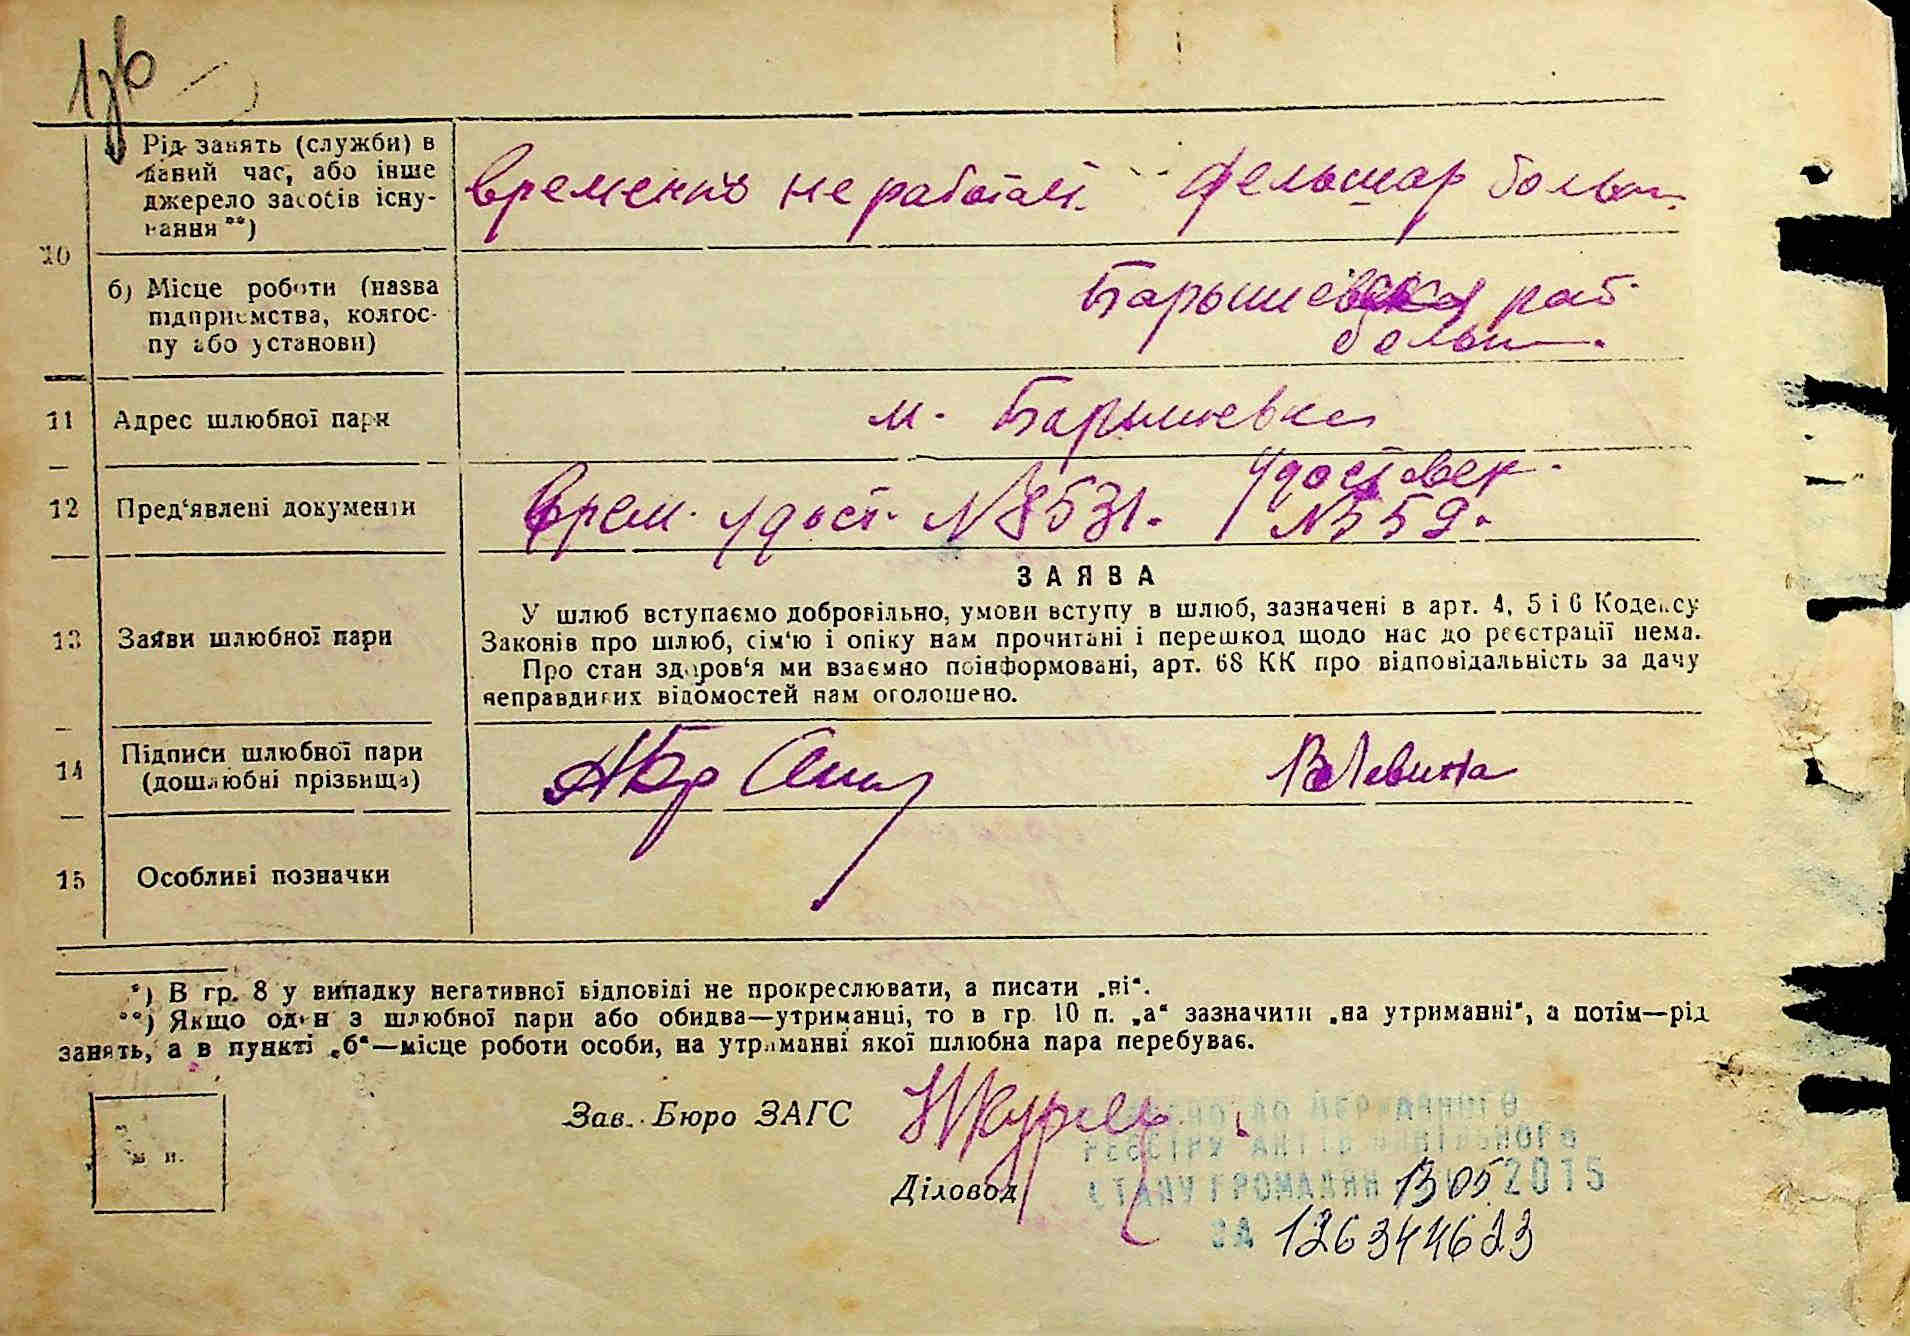 Рід занять (служби) в
даний час, або інше
джерело засобів існу-
вання **)
временно не работает. фельдшер больн.
10
б) Місце роботи (назва
підприємства, колгос-
пу або установи)
Барышевская рай.
больн.
11 Адрес шлюбної пари м. Барышевка
12 Пред'явлені документи врем. удост. №8531. удостовер.
№559.
ЗАЯВА
13 Заяви шлюбної пари
У шлюб вступаємо добровільно, умови вступу в шлюб, зазначені в арт. 4, 5 і 6 Кодексу
Законів про шлюб, сім'ю і опіку нам прочитані і перешкод щодо нас до реєстрації нема.
Про стан здоров'я ми взаємно поінформовані, арт. 68 КК про відповідальність за дачу
неправдивих відомостей нам оголошено.
14 Підписи шлюбної пари
(дошлюбні прізвища)
ВЛевина
15 Особливі позначки
*) В гр. 8 у випадку негативної відповіді не прокреслювати, а писати „ні“.
**) Якщо один з шлюбної пари або обидва—утриманці, то в гр. 10 п. „а“ зазначити „на утриманні“, а потім—рід
занять, а в пункті „б“—місце роботи особи, на утриманні якої шлюбна пара перебуває.
Зав. Бюро ЗАГС
Діловод
ДО ДЕРЖАВНОГО
РЕЄСТРУ АКТІВ ЦИВІЛЬНОГО
СТАНУ ГРОМАДЯН 13 05 2015
ЗА 126344623
м. п.